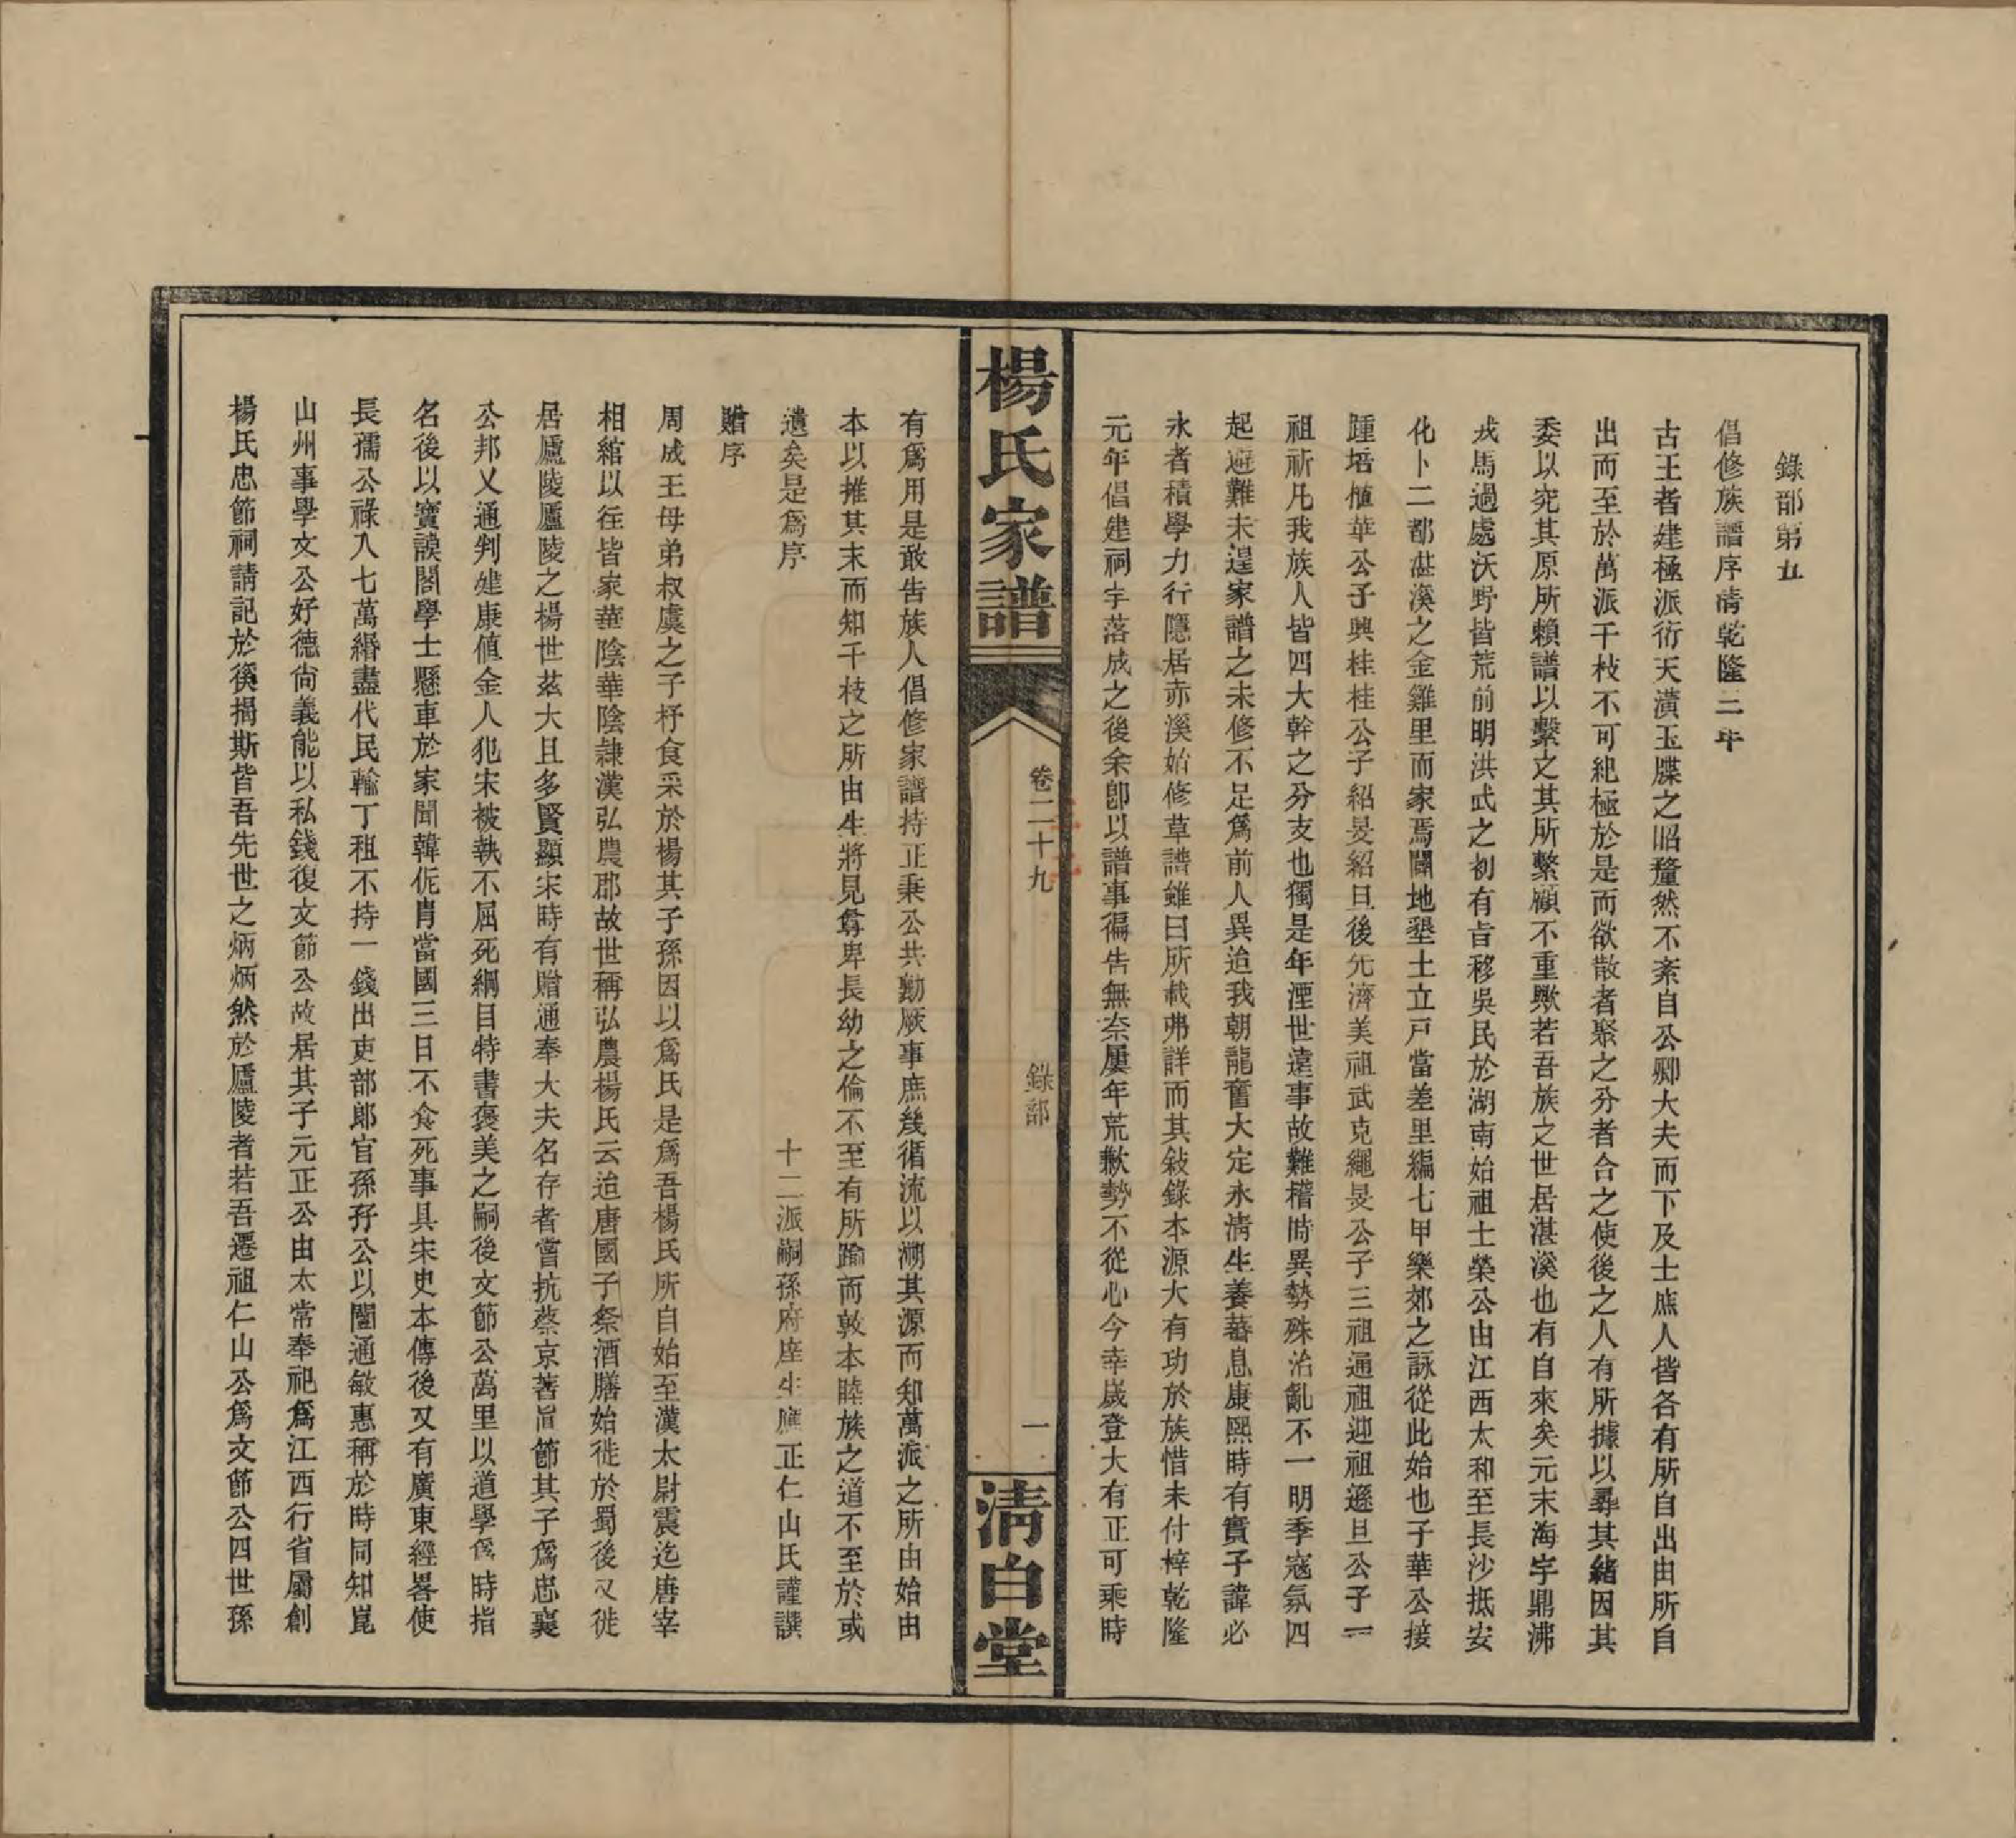 錄部第五
倡修族譜序淸乾隆二年
古王者建極派衍天潢玉牒之昭釐然不紊自公卿大夫而下及士庶人皆各有所自出由所自
出而至於萬派千枝不可紀極於是而欲散者聚之分者合之使後之人有所據以尋其緒因其
委以究其原所賴譜以繫之其所繫顧不重歟若吾族之世居湛溪也有自來矣元末海宇鼎沸
戎馬過處沃野皆荒前明洪武之初有旨移吳民於湖南始祖士榮公由江西太和至長沙抵安
化卜二都湛溪之金雞里而家焉闢地墾土立戸當差里編七甲樂郊之詠從此始也子華公接
踵培植華公子興桂桂公子紹旻紹旦後先濟美祖武克繩旻公子三祖通祖迎祖遜旦公子一
祖祈凡我族人皆四大幹之分支也獨是年湮世遠事故難稽時異勢殊治亂不一明季寇氛四
起避難未遑家譜之未修不足爲前人異迨我朝龍奮大定永淸生養蕃息康熙時有實子諱必
永者積學力行隱居赤溪始修草譜雖曰所載弗詳而其敍錄本源大有功於族惜未付梓乾隆
元年倡建祠宇落成之後余卽以譜事徧告無奈屢年荒歉勢不從心今幸歲登大有正可乘時
楊氏家譜
卷二十九
錄部
一
淸白堂
有爲用是敢告族人倡修家譜持正秉公共勷厥事庶幾循流以溯其源而知萬派之所由始由
本以推其末而知千枝之所由生將見尊卑長幼之倫不至有所踰而敦本睦族之道不至於或
遺矣是爲序
十二派嗣孫府庠生應正仁山氏謹譔
贈序
周成王母弟叔虞之子杼食采於楊其子孫因以爲氏是爲吾楊氏所自始至漢太尉震迄唐宰
相綰以往皆家華陰華陰隸漢弘農郡故世稱弘農楊氏云迨唐國子祭酒膳始徙於蜀後又徙
居廬陵廬陵之楊世玆大且多賢顯宋時有贈通奉大夫名存者嘗抗蔡京著直節其子爲忠襄
公邦乂通判建康值金人犯宋被執不屈死綱目特書褒美之嗣後文節公萬里以道學爲時指
名後以寶謨閣學士懸車於家聞韓侂胄當國三日不食死事具宋史本傳後又有廣東經畧使
長孺公祿入七萬緡盡代民輸丁租不持一錢出吏部郞官孫孖公以闓通敏惠稱於時同知崑
山州事學文公好德尙義能以私錢復文節公故居其子元正公由太常奉祀爲江西行省屬創
楊氏忠節祠請記於徯揭斯皆吾先世之炳炳然於廬陵者若吾遷祖仁山公爲文節公四世孫